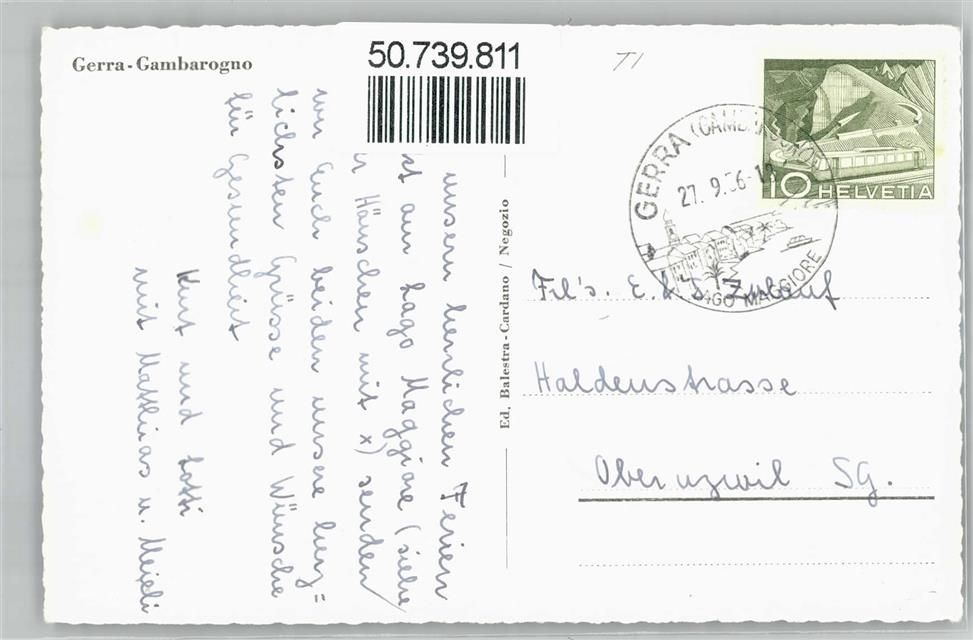 Gerra-Gambarogno
50.739.811
TI
GERRA (GAMBAROGNO)
27. 9. 56-
LAGO MAGGIORE
10 HELVETIA
unsern herrlichen Ferien
am Lago Maggiore (siehe
Häuschen mit x) senden
wir Euch beiden unsere herz=
lichsten Grüsse und Wünsche
für Gesundheit
Kurt und Lotti
mit Matthias u. Meieli
Ed. Balestra-Cardano / Negozio
Frl's. E. & Zulauf
Haldenstrasse
Oberuzwil SG.